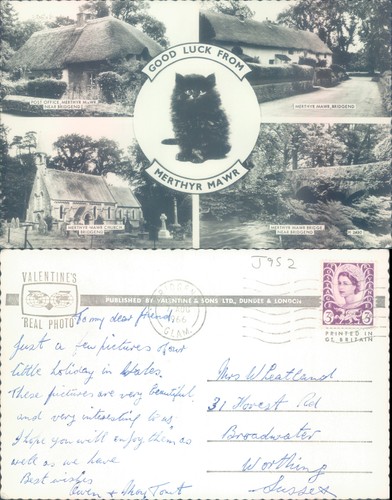 GOOD LUCK FROM
POST OFFICE, MERTHYR MAWR, NEAR BRIDGEND
MERTHYR MAWR, BRIDGEND
MERTHYR MAWR
MERTHYR MAWR CHURCH, BRIDGEND
MERTHYR MAWR BRIDGE NEAR BRIDGEND
J952
VALENTINE'S
"REAL PHOTO"
PUBLISHED BY VALENTINE & SONS LTD., DUNDEE & LONDON
AUG
GLAM
3D
3D
PRINTED IN
GT. BRITAIN
To my dear friend
Just a few pictures of our
little holiday in Wales.
These pictures are very beautiful
and very interesting to us
I hope you will enjoy them, as
well as we have
Best wishes
Owen +
Mrs Wheatland
31 Forest Rd
Broadwater
Worthing
Sussex